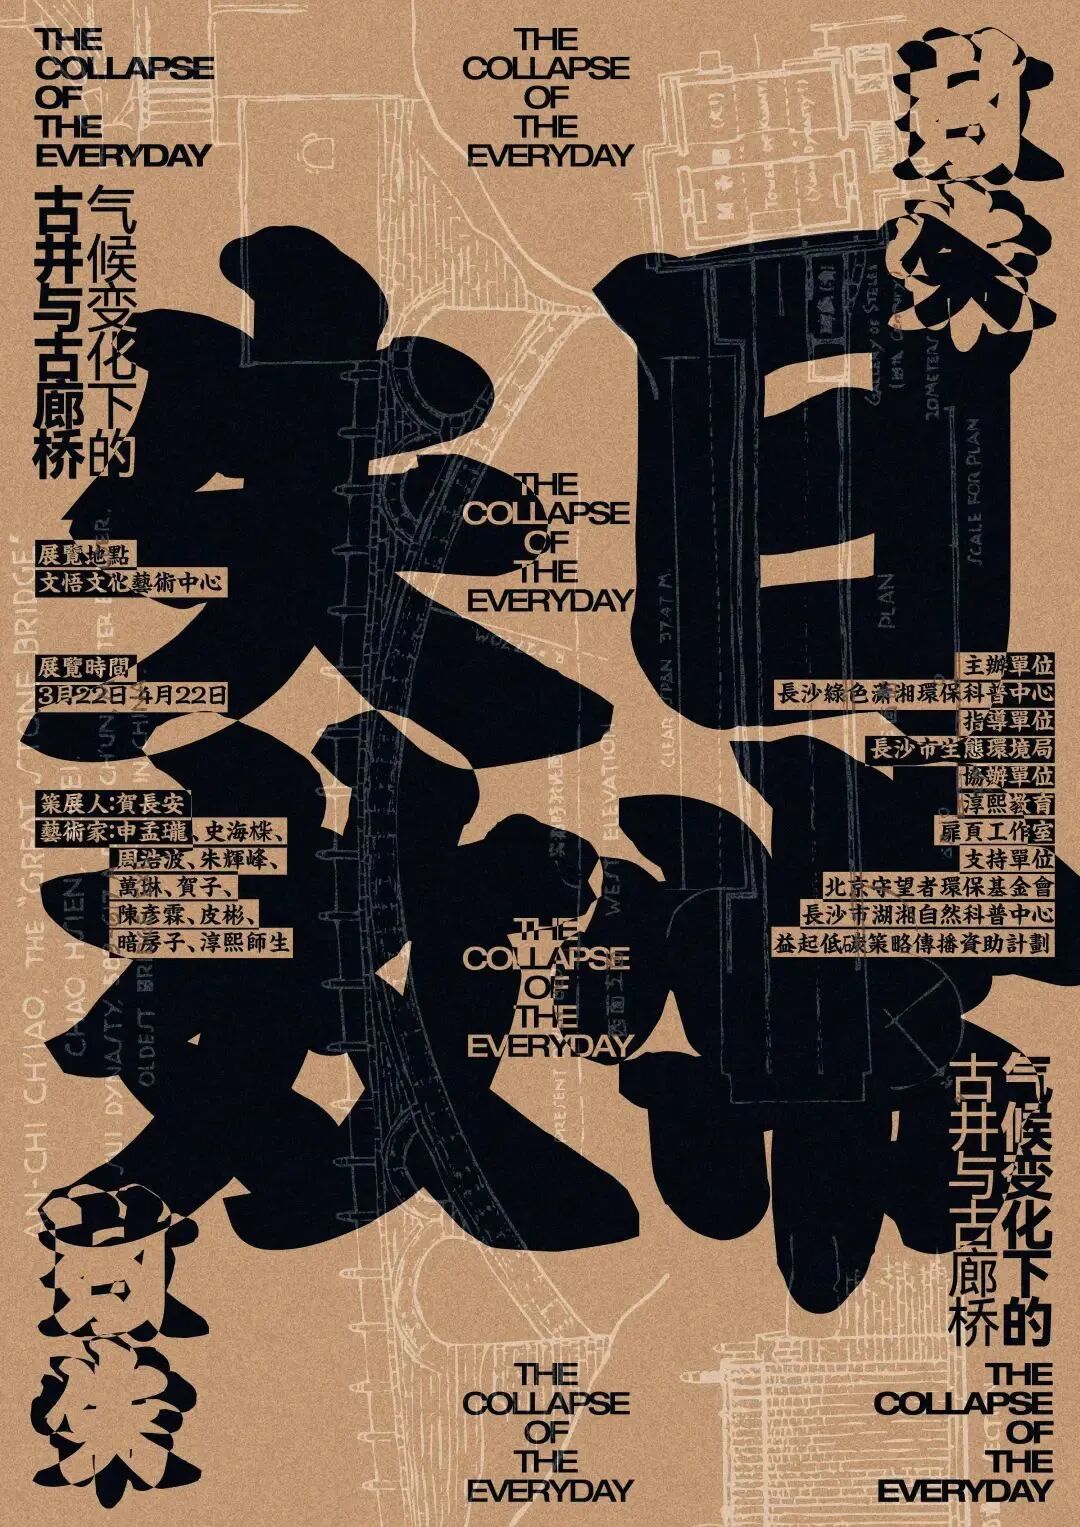 THE
COLLAPSE
OF
THE
EVERYDAY
THE
COLLAPSE
OF
THE
EVERYDAY
日常
气候变化下的
古井与古廊桥
日常
失效
THE
COLLAPSE
OF
THE
EVERYDAY
展覽地點
文悟文化藝術中心
展覽時間
3月22日-4月22日
策展人:賀長安
藝術家:申孟瓏、史海楪、
周浩波、朱輝峰、
萬琳、賀子、
陳彥霖、皮彬、
暗房子、淳熙師生
主辦單位
長沙綠色瀟湘環保科普中心
指導單位
長沙市生態環境局
協辦單位
淳熙教育
扉頁工作室
支持單位
北京守望者環保基金會
長沙市湖湘自然科普中心
益起低碳策略傳播資助計劃
THE
COLLAPSE
OF
THE
EVERYDAY
气候变化下的
古井与古廊桥
日常
THE
COLLAPSE
OF
THE
EVERYDAY
THE
COLLAPSE
OF
THE
EVERYDAY
GALLERY OF STELES
20 METERS
SCALE FOR PLAN
PLAN
CLEAR SPAN 37.47 M.
WEST ELEVATION
AN-CHI CH'IAO, THE "GREAT STONE BRIDGE"
OLDEST BRI
IN CHINA